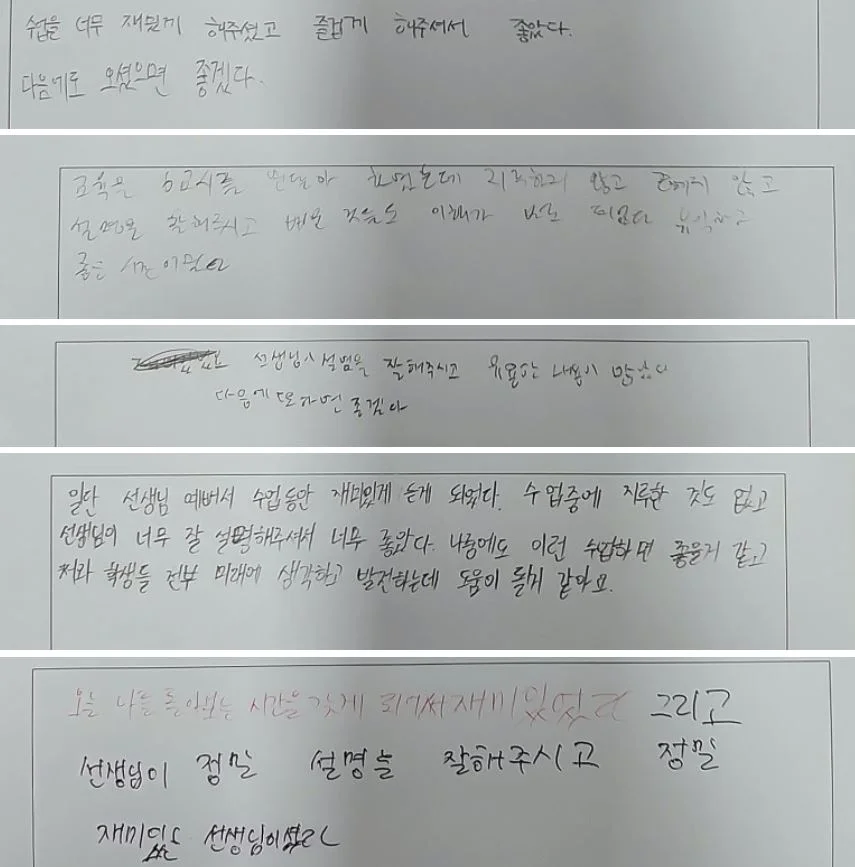 수업을 너무 재밌게 해주셨고 즐겁게 해주셔서 좋았다.
다음에도 오셨으면 좋겠다.
교육은 6교시를 연달아 했는데 지루하지 않고
설명을 잘해주시고 배운 것들도 이해가 유익하고
좋은 시간이었다
선생님이 설명을 잘해주시고 유용한 내용이 많았다
다음에 또하면 좋겠다
일단 선생님 예뻐서 수업동안 재미있게 듣게 되었다. 수업중에 지루한 것도 없고
선생님이 너무 잘 설명해주셔서 너무 좋았다. 나중에도 이런 수업하면 좋을거 같고
저와 학생들 전부 미래에 생각하고 발전하는데 도움이 될거 같아요.
오늘 나를 돌아보는 시간을 갖게 되어서 재미있었다 그리고
선생님이 정말 설명을 잘해주시고 정말
재미있는 선생님이셨다